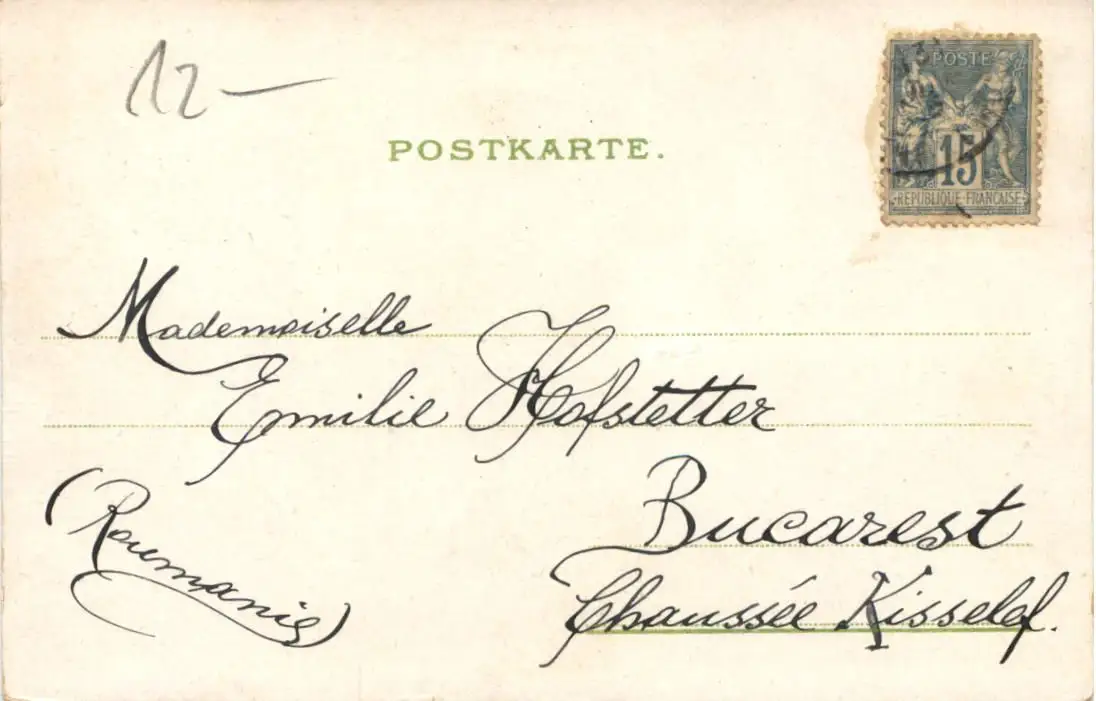 12 —
POSTKARTE.
POSTE
15
REPUBLIQUE FRANÇAISE
Mademoiselle
Emilie Hofstetter
Bucarest
(Roumanie)
Chaussée Kisselef.